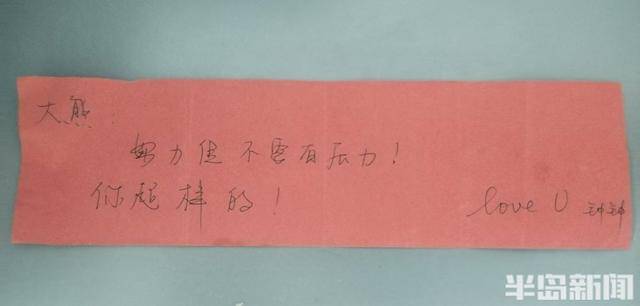 大熊:
努力但不要有压力!
你超棒的! love U 钟钟
半岛新闻